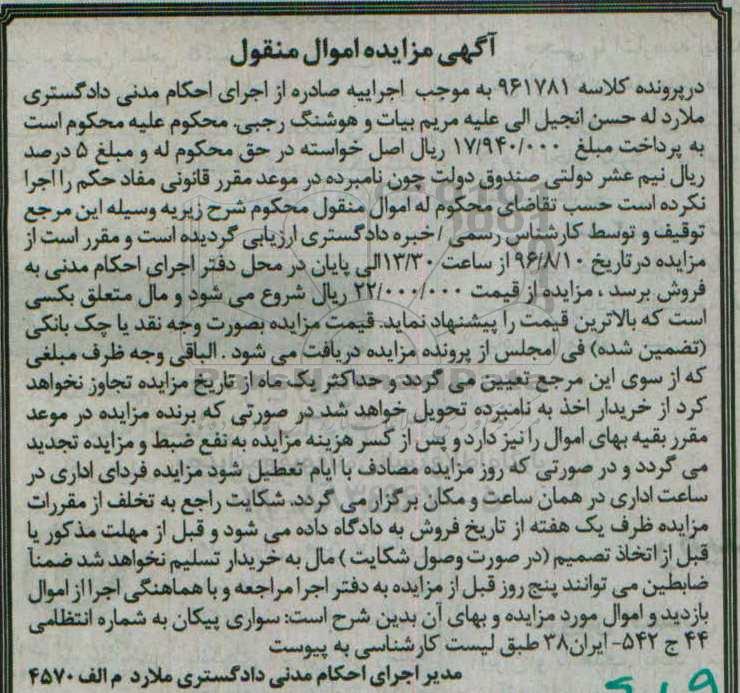 آگهی مزایده اموال منقول
درپرونده کلاسه ۹۶۱۷۸۱ به موجب اجراییه صادره از اجرای احکام مدنی دادگستری
ملارد له حسن انجیل الی علیه مریم بیات و هوشنگ رجبی. محکوم علیه محکوم است
به پرداخت مبلغ ۱۷/۹۴۰/۰۰۰ ریال اصل خواسته در حق محکوم له و مبلغ ۵ درصد
ریال نیم عشر دولتی صندوق دولت چون نامبرده در موعد مقرر قانونی مفاد حکم را اجرا
نکرده است حسب تقاضای محکوم له اموال منقول محکوم شرح زیربه وسیله این مرجع
توقیف و توسط کارشناس رسمی /خبره دادگستری ارزیابی گردیده است و مقرر است از
مزایده درتاریخ ۹۶/۸/۱۰ از ساعت ۱۳/۳۰الی پایان در محل دفتر اجرای احکام مدنی به
فروش برسد ، مزایده از قیمت ۲۲/۰۰۰/۰۰۰ ریال شروع می شود و مال متعلق بکسی
است که بالاترین قیمت را پیشنهاد نماید. قیمت مزایده بصورت وجه نقد یا چک بانکی
(تضمین شده) فی امجلس از پرونده مزایده دریافت می شود . الباقی وجه ظرف مبلغی
که از سوی این مرجع تعیین می گردد و حداکثر یک ماه از تاریخ مزایده تجاوز نخواهد
کرد از خریدار اخذ به نامبرده تحویل خواهد شد در صورتی که برنده مزایده در موعد
مقرر بقیه بهای اموال را نیز دارد و پس از کسر هزینه مزایده به نفع ضبط و مزایده تجدید
می گردد و در صورتی که روز مزایده مصادف با ایام تعطیل شود مزایده فردای اداری در
ساعت اداری در همان ساعت و مکان برگزار می گردد. شکایت راجع به تخلف از مقررات
مزایده ظرف یک هفته از تاریخ فروش به دادگاه داده می شود و قبل از مهلت مذکور یا
قبل از اتخاذ تصمیم (در صورت وصول شکایت ) مال به خریدار تسلیم نخواهد شد ضمناً
ضابطین می توانند پنج روز قبل از مزایده به دفتر اجرا مراجعه و با هماهنگی اجرا از اموال
بازدید و اموال مورد مزایده و بهای آن بدین شرح است: سواری پیکان به شماره انتظامی
۴۴ ج ۵۴۲- ایران۳۸ طبق لیست کارشناسی به پیوست
مدیر اجرای احکام مدنی دادگستری ملارد م الف ۴۵۷۰